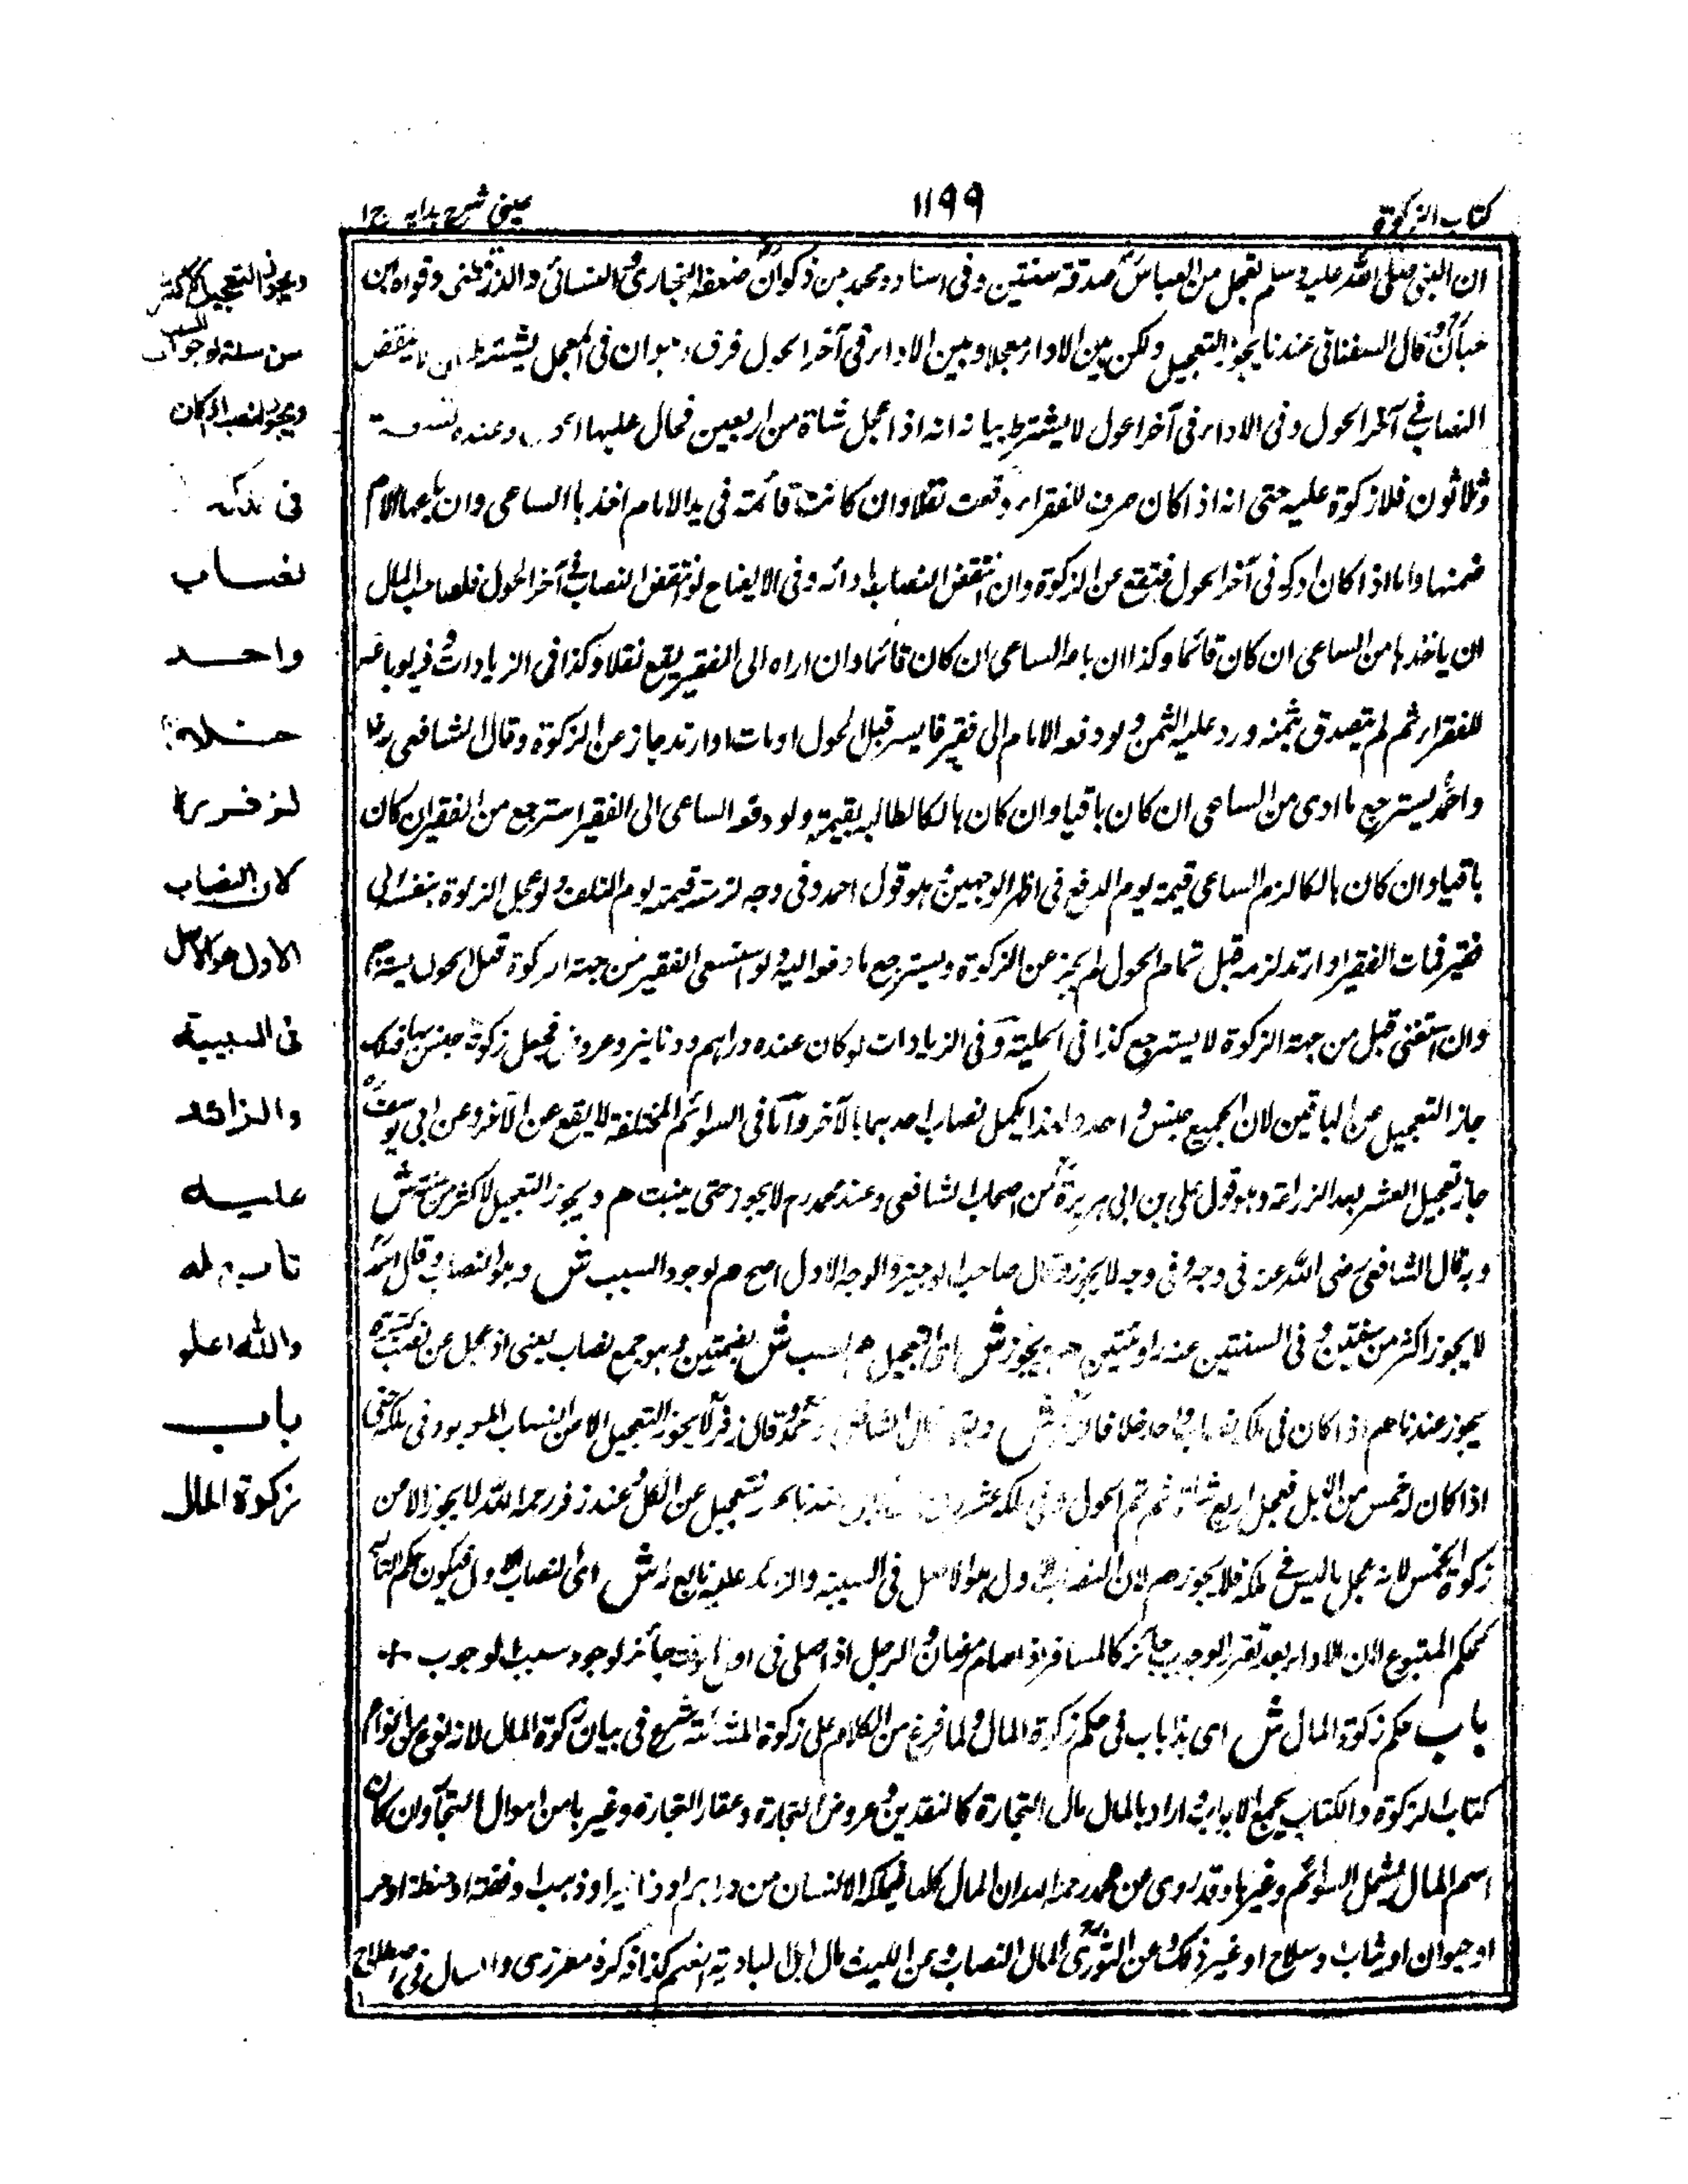 كتاب الزكوة
١١٩٩
عينى شرح هدايه ج١
ان النبى صلى الله عليه وسلم تعجل من العباس صدقة سنتين وفى اسناده محمد بن ذكوان ضعفه البخارى والنسائى والدارقطنى وقواه ابن
حبان وقال السغناقى عندنا يجوز التعجيل ولكن بين الاداء معجلا وبين الاداء فى آخر الحول فرق وهو ان فى المعجل يشترط ان لا ينتقض
النصاب فى آخر الحول وفى الاداء فى آخر الحول لا يشترط بيانه انه اذا عجل شاة من اربعين فحال عليها الحول وعنده تسعة
وثلاثون فلا زكوة عليه حتى انه اذا كان صرف للفقراء وقعت نفلا وان كانت قائمة فى يد الامام اخذها الساعى وان باعها الامام
ضمنها واما اذا كان ادى فى آخر الحول فتقع عن الزكوة وان انتقض النصاب بادائه وفى الايضاح لو انتقض النصاب فى آخر الحول فلصاحب المال
ان ياخذها من الساعى ان كان قائما وكذا ان باعه الساعى ان كان قائما وان اداه الى الفقير يقع نفلا وكذا فى الزيادات
للفقراء ثم لم يتصدق بثمنه ورد عليه الثمن ولو دفعه الامام الى فقير فايسر قبل الحول او مات او ارتد جاز عن الزكوة وقال الشافعى
واحمد يسترجع ما ادى من الساعى ان كان باقيا وان كان هالكا طالبه بقيمته ولو دفعه الساعى الى الفقير استرجع من الفقير ان كان
باقيا وان كان هالكا لزم الساعى قيمته يوم الدفع فى اظهر الوجهين وهو قول احمد وفى وجه لزمته قيمته يوم التلف ولو عجل الزكوة بنفسه الى
فقير فمات الفقير او ارتد لزمه قبل تمام الحول لم يجز عن الزكوة ويسترجع ما دفعه اليه ولو استغنى الفقير من جهة الزكوة قبل الحول يسترجع
وان استغنى قبل من جهة الزكوة لا يسترجع كذا فى الحلية وفى الزيادات لو كان عنده دراهم ودنانير وعروض فعجل زكوة جنس منها فهلك
جاز التعجيل عن الباقين لان الجميع جنس واحد ولهذا يكمل نصاب احدهما بالآخر واما فى السوائم المختلفة لا يقع عن الآخر وعن ابى يوسف
جاز تعجيل العشر بعد الزراعة وهو قول على بن ابى هريرة من اصحاب الشافعى وعند محمد رح لا يجوز حتى ينبت م ويجوز التعجيل لاكثر من سنة ش
وبه قال الشافعى رضى الله عنه فى وجه وفى وجه لا يجوز وقال صاحب الوجيز والوجه الاول اصح م لوجود السبب ش وهو النصاب وقال احمد
لا يجوز اكثر من سنتين وفى السنتين عنه روايتين م ويجوز ش اى التعجيل م لنصب ش بضمتين وهو جمع نصاب يعنى اذا عجل عن نصب كثيرة
يجوز عندنا م اذا كان فى ملكه نصاب واحد خلافا لزفر ش وبقوله قال الشافعى واحمد وقال زفر لا يجوز التعجيل الا من النصاب الموجود فى ملكه حتى
اذا كان له خمس من الابل فعجل اربع شياه ثم تم الحول وفى ملكه عشرون عندنا يجوز التعجيل عن الكل وعند زفر رحمه الله لا يجوز الا من
زكوة الخمس لانه عجل ما ليس فى ملكه فلا يجوز م لان النصاب الاول هو الاصل فى السببية والزائد عليه تابع له ش اى النصاب الاول فيكون حكم التابع
كحكم المتبوع لان الاداء بعد تقرر الوجوب جائز كالمسافر اذا صام رمضان والرجل اذا صلى فى اول الوقت جائز لوجود سبب الوجوب +
باب حكم زكوة المال ش اى هذا باب فى حكم زكوة المال ولما فرغ من الكلام على زكوة الماشية شرع فى بيان زكوة المال لانه نوع من انواع
كتاب الزكوة والكتاب يجمع الابواب واراد بالمال مال التجارة كالنقدين وعروض التجارة وعقار التجارة وغيرها من اموال التجارة وان كان
اسم المال يشمل السوائم وغيرها وقد روى عن محمد رحمه الله ان المال كلما يملكه الانسان من دراهم او دنانير او ذهب او فضة او حنطة او خبز
او حيوان او ثياب وسلاح او غير ذلك وعن الثورى المال النصاب وعن الليث مال اهل البادية النعم كذا ذكره مطرزى والمال فى اصطلاح
ويجوز التعجيل لاكثر
من سنة لوجود السبب
ويجوز لنصب اذا كان
فى ملكه
نصاب
واحد
خلافا
لزفر رح
لان النصاب
الاول هو الاصل
فى السببية
والزائد
عليه
تابع له
والله اعلم
باب
زكوة المال